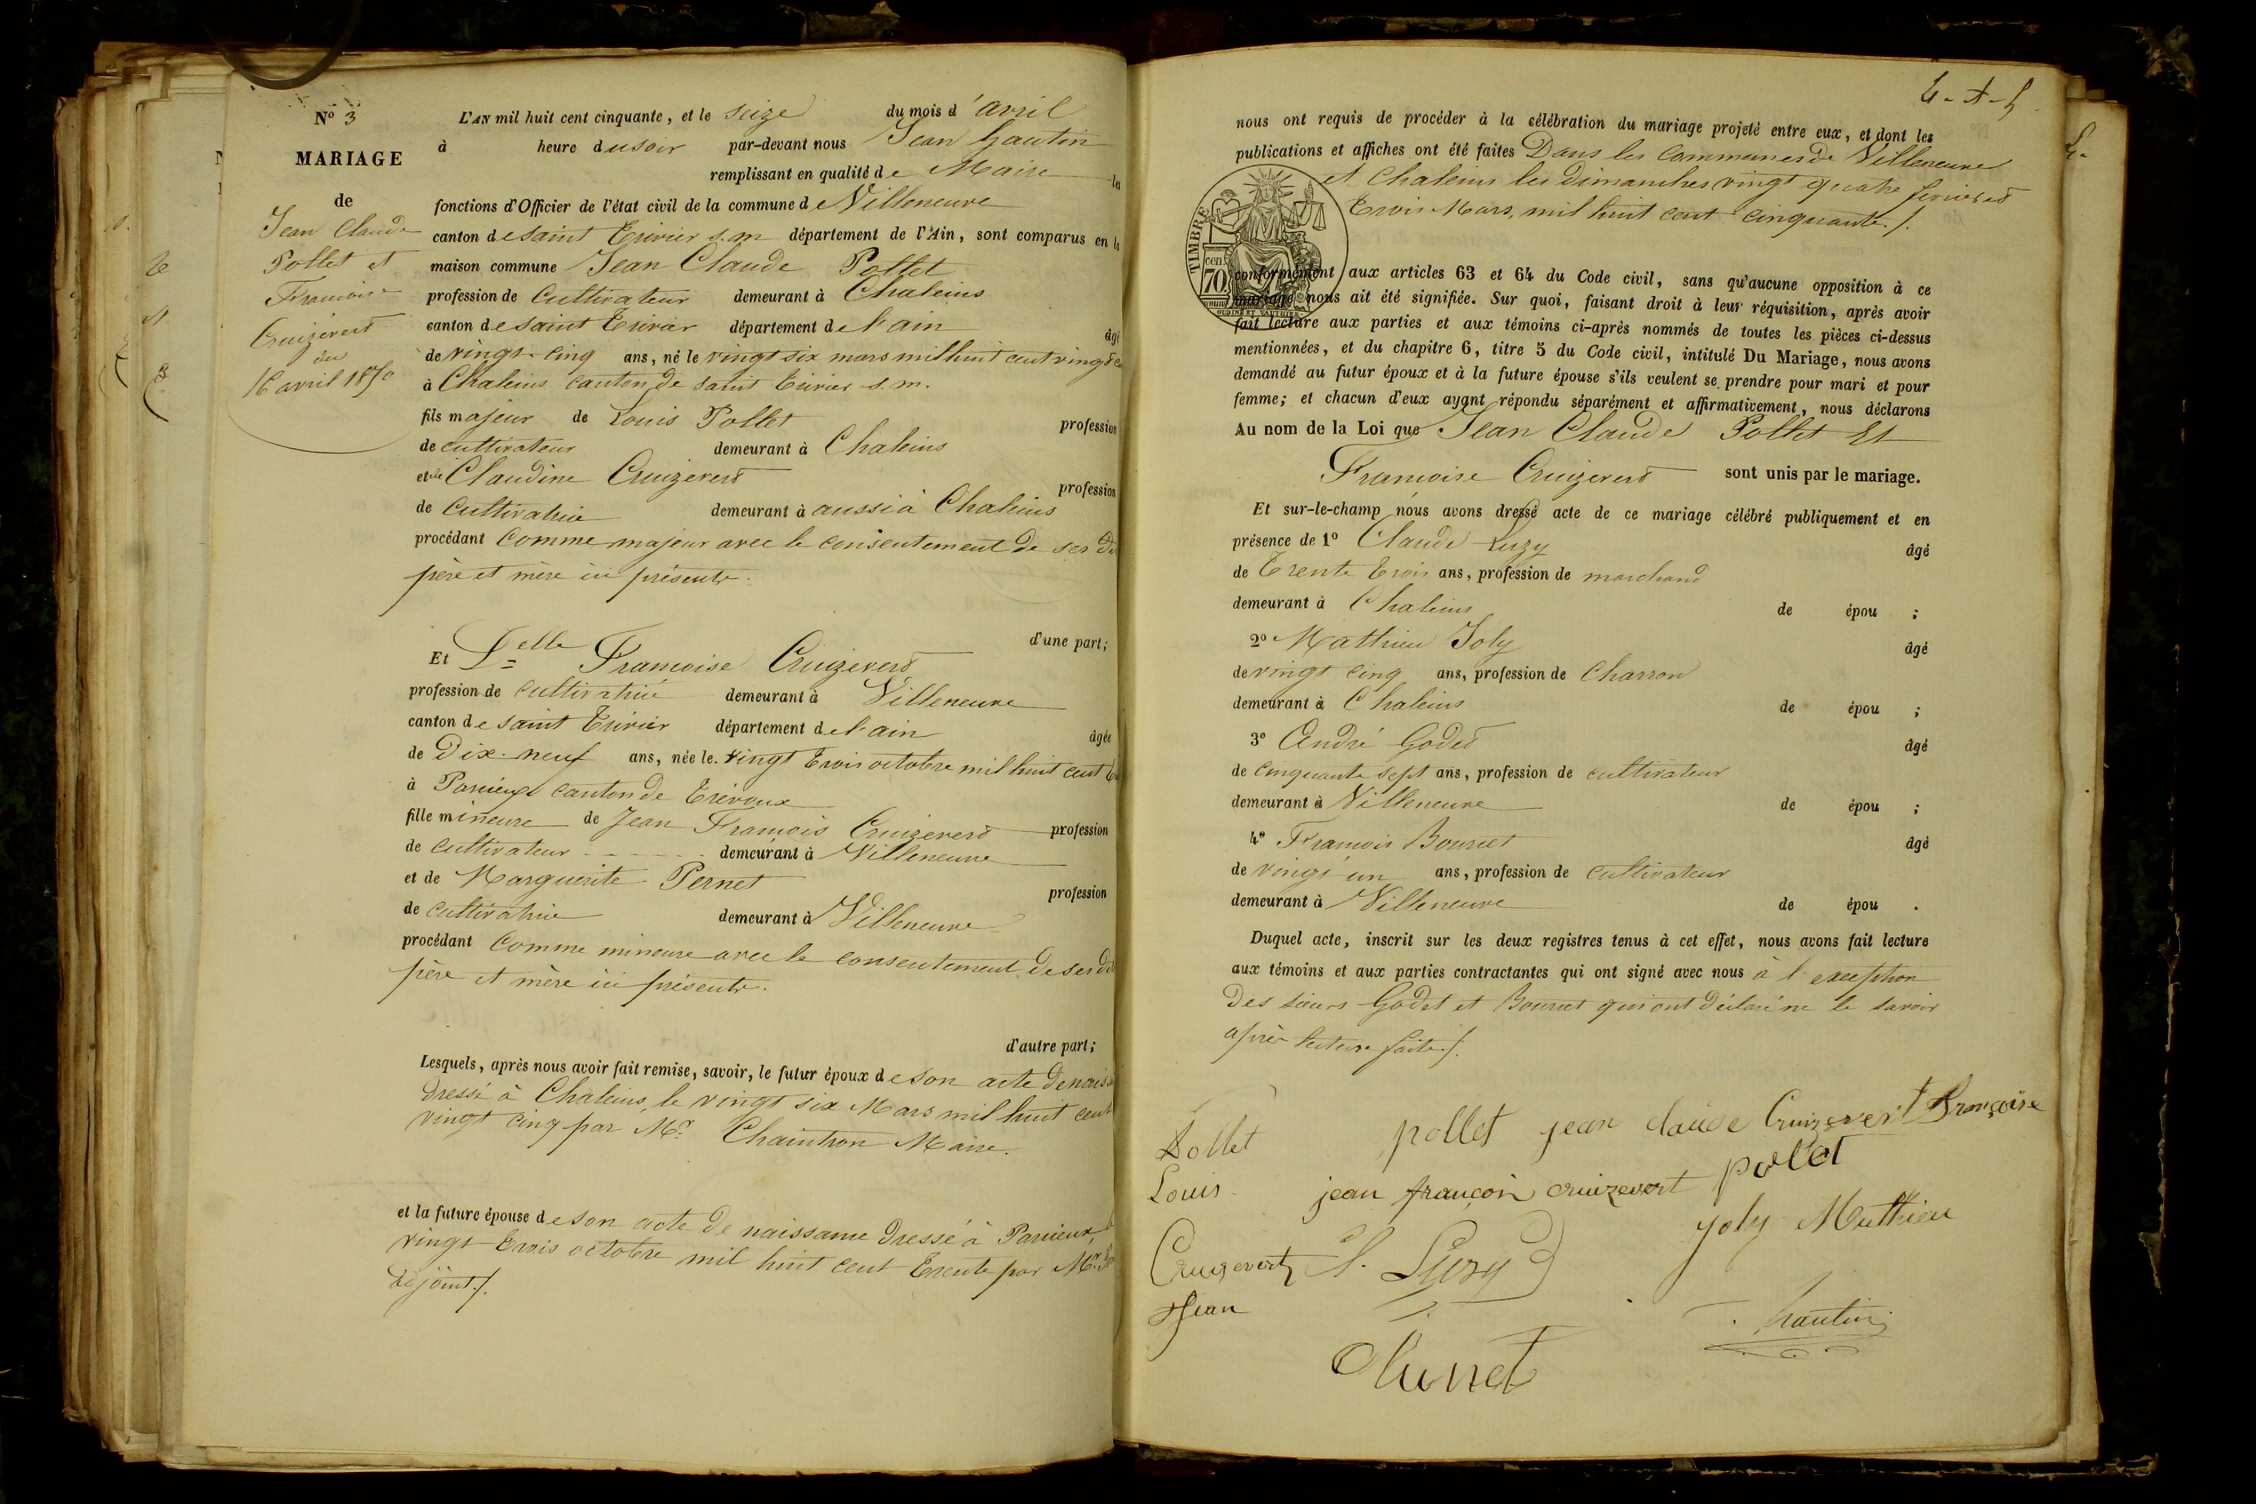 N° 3
MARIAGE
de
Jean Claude
Pollet et
Francoise
Cruizevert
du
16 avril 1850
L'AN mil huit cent cinquante, et le seize du mois d'avril
à heure du soir par-devant nous Jean hautin
remplissant en qualité de Maire les
fonctions d'Officier de l'état civil de la commune de Villeneuve
canton de saint Trivier s. m département de l'Ain, sont comparus en la
maison commune Jean Claude Pollet
profession de cultivateur demeurant à Chaleins
canton de saint Trivier département de l'ain âgé
de vingt-cinq ans, né le vingt six mars mil huit cent vingt
à Chaleins canton de saint Trivier s. m.
fils majeur de Louis Pollet profession
de cultivateur demeurant à Chaleins
et de Claudine Cruizevert profession
de cultivatrice demeurant à aussi à Chaleins
procédant comme majeur avec le consentement de ses
père et mère ici présents.
d'une part;
Et Delle Francoise Cruizevert
profession de cultivatrice demeurant à Villeneuve
canton de saint Trivier département de l'ain âgée
de Dix-neuf ans, née le vingt trois octobre mil huit cent
à Parcieux canton de Trévoux
fille mineure de Jean Francois Cruizevert profession
de cultivateur demeurant à Villeneuve
et de Marguerite Pernet profession
de cultivatrice demeurant à Villeneuve
procédant comme mineure avec le consentement de ses
père et mère ici présents.
d'autre part;
Lesquels, après nous avoir fait remise, savoir, le futur époux de son acte de
dressé à Chaleins, le vingt six Mars mil huit cent
vingt cinq par Mr. Chaintron Maire.
et la future épouse de son acte de naissance dressé à Parcieux,
vingt trois octobre mil huit cent trente par Mr.
adjoint ./.
nous ont requis de procéder à la célébration du mariage projeté entre eux, et dont les
publications et affiches ont été faites Dans les communes de Villeneuve
et Chaleins les dimanches vingt quatre fevrier et
trois Mars, mil huit cent cinquante ./.
TIMBRE
cen.
70
OUDINÉ ET GAUTHIER
conformément aux articles 63 et 64 du Code civil, sans qu'aucune opposition à ce
mariage nous ait été signifiée. Sur quoi, faisant droit à leur réquisition, après avoir
fait lecture aux parties et aux témoins ci-après nommés de toutes les pièces ci-dessus
mentionnées, et du chapitre 6, titre 5 du Code civil, intitulé Du Mariage, nous avons
demandé au futur époux et à la future épouse s'ils veulent se prendre pour mari et pour
femme; et chacun d'eux ayant répondu séparément et affirmativement, nous déclarons
Au nom de la Loi que Jean Claude Pollet Et
Francoise Cruizevert sont unis par le mariage.
Et sur-le-champ nous avons dressé acte de ce mariage célébré publiquement et en
présence de 1° Claude Luzy âgé
de Trente trois ans, profession de marchand
demeurant à Chaleins de épou ;
2° Mathieu Joly âgé
de vingt cinq ans, profession de Charron
demeurant à Chaleins de épou ;
3° André Godet âgé
de cinquante sept ans, profession de cultivateur
demeurant à Villeneuve de épou ;
4° Francois Bourcet âgé
de vingt un ans, profession de cultivateur
demeurant à Villeneuve de épou .
Duquel acte, inscrit sur les deux registres tenus à cet effet, nous avons fait lecture
aux témoins et aux parties contractantes qui ont signé avec nous à l'exception
des sieurs Godet et Bourcet qui ont déclaré ne le savoir
après lecture faite ./.
Pollet pollet jean claude Cruizevert Françoise
Louis jean françois cruizevert pollet
Cruizevert C. Luzy joly Mathieu
Jean hautin